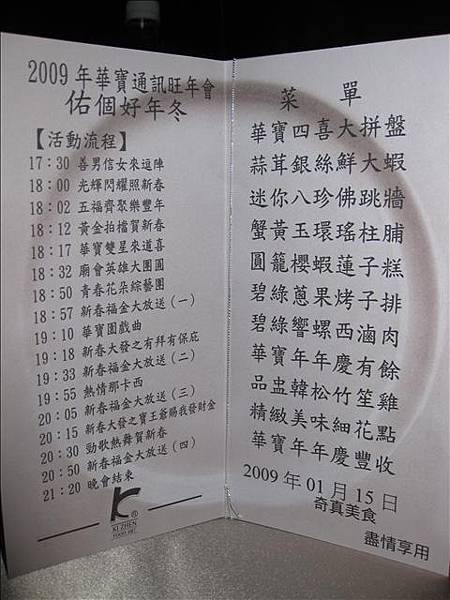 2009 年華寶通訊旺年會
佑個好年冬
【活動流程】
17:30 善男信女來逗陣
18:00 光輝閃耀照新春
18:02 五福齊聚樂豐年
18:12 黃金拍檔賀新春
18:17 華寶雙星來道喜
18:32 廟會英雄大團圓
18:50 青春花朵綜藝團
18:57 新春福金大放送(一)
19:10 華寶園戲曲
19:18 新春大發之有拜有保庇
19:33 新春福金大放送(二)
19:55 熱情那卡西
20:05 新春福金大放送(三)
20:15 新春大發之寶王爺賜我發財金
20:30 勁歌熱舞賀新春
20:50 新春福金大放送(四)
21:20 晚會結束
R
KI ZHEN
菜 單
華寶四喜大拼盤
蒜茸銀絲鮮大蝦
迷你八珍佛跳牆
蟹黃玉環瑤柱脯
圓籠櫻蝦蓮子糕
碧綠蔥果烤子排
碧綠響螺西滷肉
華寶年年慶有餘
品盅韓松竹笙雞
精緻美味細花點
華寶年年慶豐收
2009 年 01 月 15 日
奇真美食
盡情享用